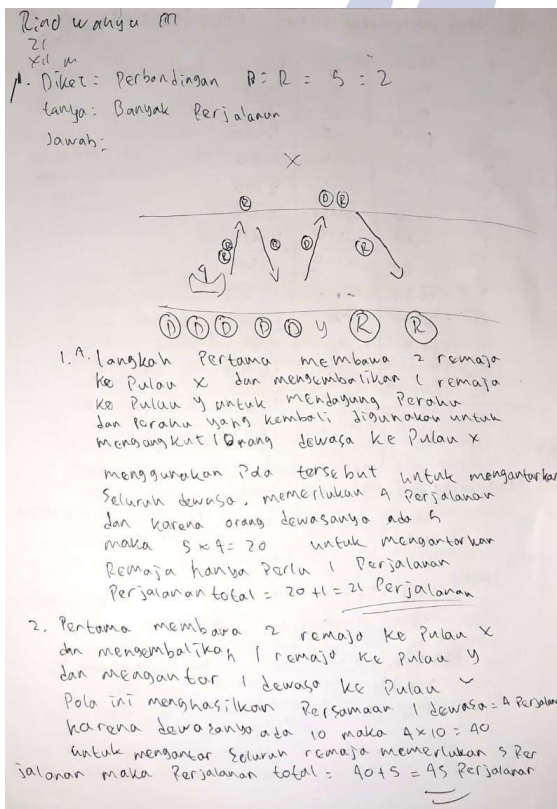 Riad wahyu M
21
XII M
1. Diket: Perbandingan D:R = 5:2
tanya: Banyak Perjalanan
Jawab:
X
R D R
R R R D R
D D D D D Y R R
1. A. langkah Pertama membawa 2 remaja
ke Pulau X dan mengembalikan 1 remaja
ke Pulau Y untuk mendayung Perahu
dan Perahu yang kembali digunakan untuk
mengangkut 1 Orang dewasa ke Pulau X
menggunakan Pola tersebut untuk mengantarkan
Seluruh dewasa. memerlukan 4 Perjalanan
dan karena orang dewasanya ada 5
maka 5 x 4 = 20 untuk mengantarkan
Remaja hanya Perlu 1 Perjalanan
Perjalanan total = 20 + 1 = 21 Perjalanan
2. Pertama membawa 2 remaja ke Pulau X
dan mengembalikan 1 remaja ke Pulau Y
dan mengantar 1 dewasa ke Pulau
Pola ini menghasilkan Persamaan 1 dewasa = 4 Perjalan
karena dewasanya ada 10 maka 4 x 10 = 40
untuk mengantar Seluruh remaja memerlukan 5 Per
jalanan maka Perjalanan total = 40 + 5 = 45 Perjalanan